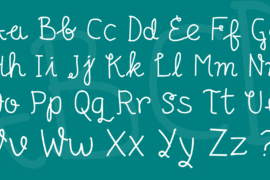 a Bb Cc Dd Ee Ff G
h Ii Jj Kk Ll Mm N
o Pp Qq Rr Ss Tt U
v Ww Xx Yy Zz ?